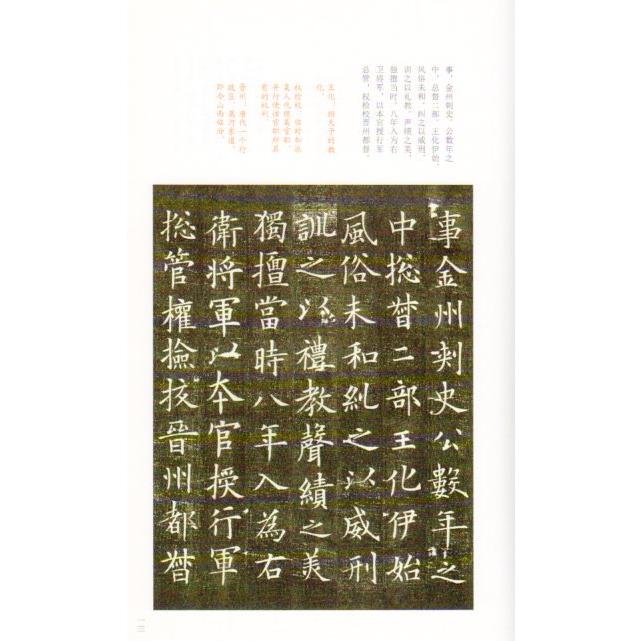 事，金州刺史。公数年之
中，总督二部。王化伊始，
风俗未和，纠之以威刑，
训之以礼教，声绩之美，
独擅当时。八年入为右
卫将军，以本官授行军
总管，权检校晋州都督，
王化，指天子的教
化。
权检校，临时加派
某人代理某官职，
并行使该官职所具
有的权利。
晋州，唐代一个行
政区，属河东道，
即今山西临汾。
事金州刾史公數年之
中捴督二部王化伊始
風俗未和糺之以威刑
訓之以禮教聲績之美
獨擅當時八年入為右
衛将軍以本官授行軍
捴管權撿挍晉州都督